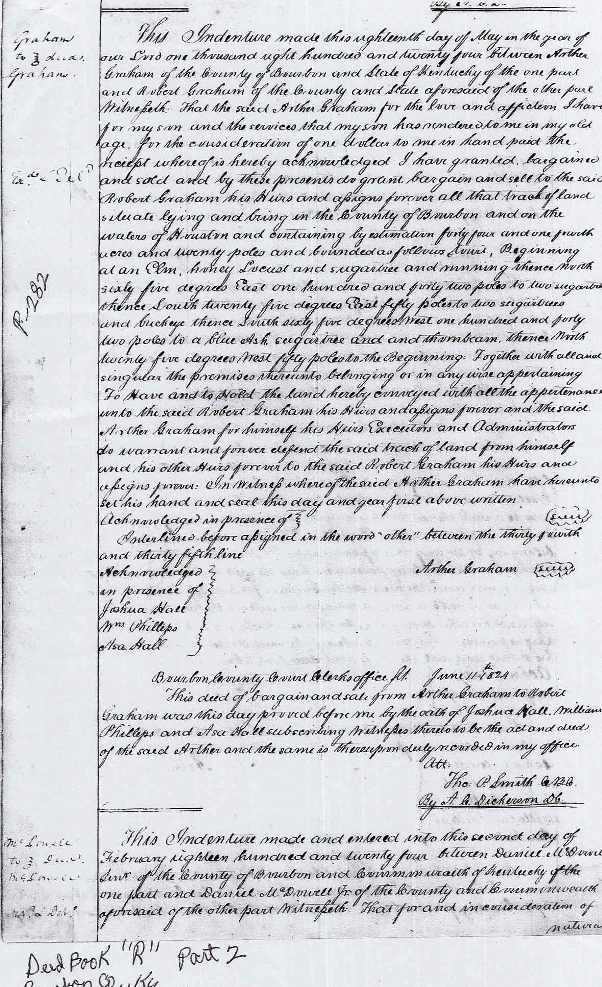 Graham
to } deed
Graham
This Indenture made this eighteenth day of May in the year of
our Lord one thousand eight hundred and twenty four between Arther
Graham of the County of Bourbon and State of Kentucky of the one part
and Robert Graham of the County and State aforesaid of the other part
Witnesseth. That the said Arther Graham for the love and affection I have
for my son and the services that my son has rendered to me in my old
age, for the consideration of one dollar to me in hand paid the
receipt whereof is hereby acknowledged I have granted, bargained
and sold and by these presents do grant bargain and sell to the said
Robert Graham his Heirs and assigns forever all that track of land
situate lying and being in the County of Bourbon and on the
waters of Houston and containing by estimation forty four and one fourth
acres and twenty poles and bounded as follows towit, Beginning
at an Elm, honey Locust and sugartree and running thence North
sixty five degrees East one hundred and forty two poles to two sugartrees
thence South twenty five degrees East fifty poles to two sugartrees
and buckeye thence South sixty five degrees West one hundred and forty
two poles to a blue Ash, sugartree and and thornbeam, thence North
twenty five degrees West fifty poles to the Beginning. Together with all and
singular the premises thereunto belonging or in any wise appertaining
To Have and to Hold the land hereby conveyed with all the appertenances
unto the said Robert Graham his Heirs and assigns forever and the said
Arther Graham for himself his Heirs Executors and Administrators
do warrant and forever defend the said track of land from himself
and his other Heirs forever to the said Robert Graham his Heirs and
assigns forever. In Witness whereof the said Arther Graham have hereunto
set his hand and seal this day and year first above written
Acknowledged in presence of }
Interlined before assigned in the word "other" between the thirty fourth
and thirty fifth line
Acknowledged Arther Graham
in presence of
Joshua Hall
Wm Phillips
Asa Hall
P. 282
Bourbon County Court Clerks office Sct. June 11th 1824
This deed of bargain and sale from Arther Graham to Robert
Graham was this day proved before me by the oath of Joshua Hall, William
Phillips and Asa Hall subscribing Witnesses thereto to be the act and deed
of the said Arther and the same is thereupon duly recorded in my office
Att.
Tho. P. Smith C.B.C.
By A. C. Dickerson Dc.
McDowell
to } Deed
McDowell
This Indenture made and entered into this second day of
February eighteen hundred and twenty four between Daniel McDowell
Senr of the County of Bourbon and Commonwealth of Kentucky of the
one part and Daniel McDowell Jr of the County and Commonwealth
aforesaid of the other part Witnesseth. That for and in consideration of
natural
Deed Book "R" Part 2